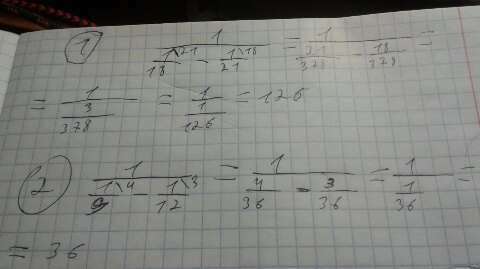 ① 1/(1/18\21 - 1/21\18) = 1/(21/378 - 18/378) =
= 1/(3/378) = 1/(1/126) = 126
② 1/(1/9\4 - 1/12\3) = 1/(4/36 - 3/36) = 1/(1/36) =
= 36